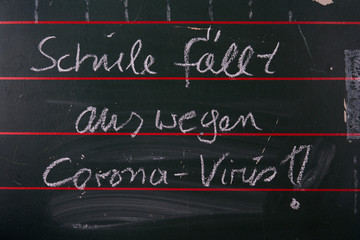 Schule fällt
aus wegen
Corona-Virus!